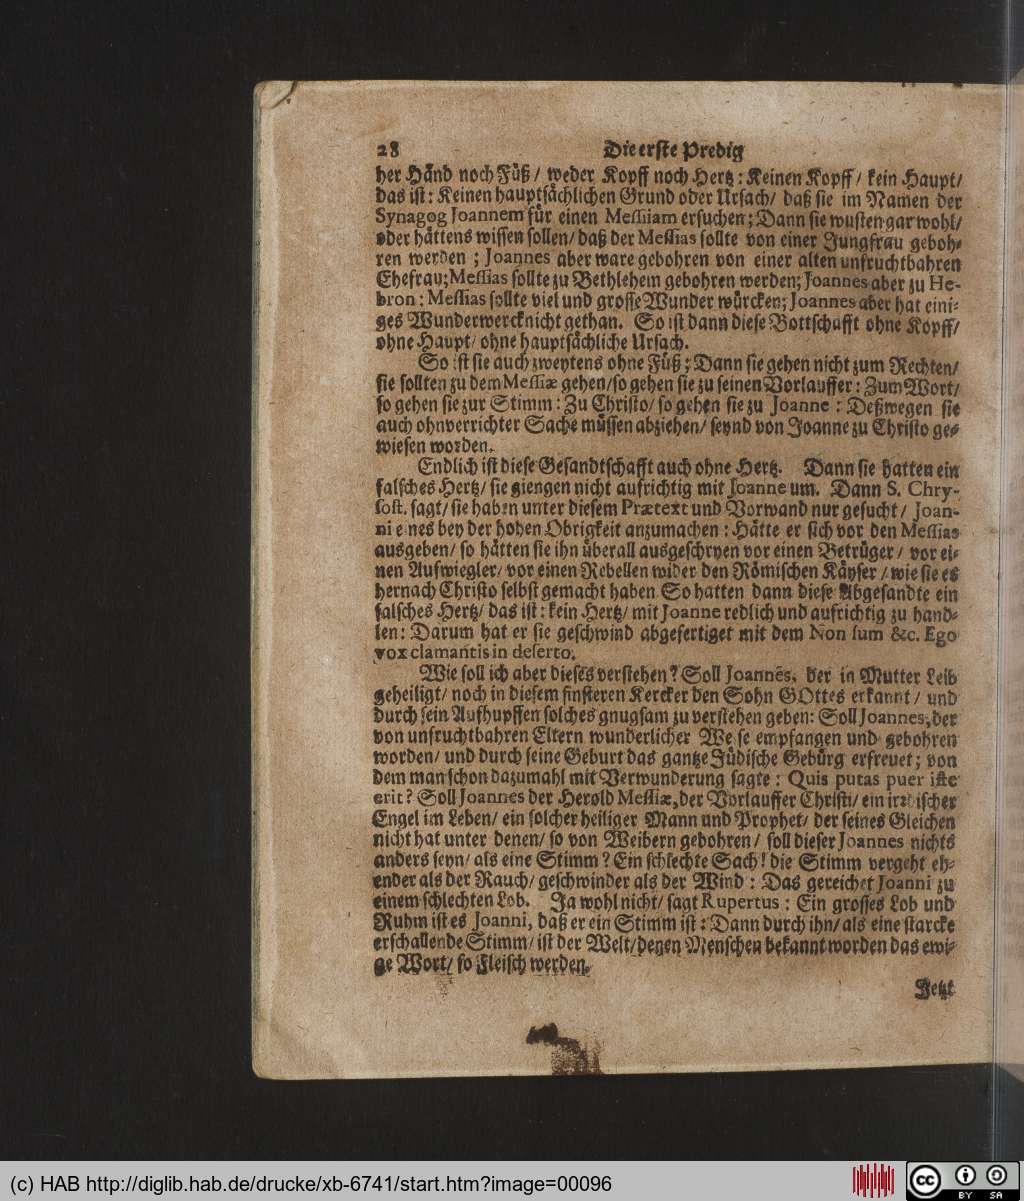 28 Die erste Predig
her Händ noch Füß / weder Kopff noch Hertz : Keinen Kopff / kein Haupt/
das ist : Keinen hauptsächlichen Grund oder Ursach/ daß sie im Namen der
Synagog Joannem für einen Messiiam ersuchen ; Dann sie wusten gar wohl/
oder hättens wissen sollen/ daß der Messias sollte von einer Jungfrau geboh-
ren werden ; Joannes aber ware gebohren von einer alten unfruchtbahren
Ehefrau; Messias sollte zu Bethlehem gebohren werden; Joannes aber zu He-
bron : Messias sollte viel und grosse Wunder würcken; Joannes aber hat eini-
ges Wunderwerck nicht gethan. So ist dann diese Bottschafft ohne Kopff/
ohne Haupt/ ohne hauptsächliche Ursach.
So ist sie auch zweytens ohne Füß ; Dann sie gehen nicht zum Rechten/
sie sollten zu dem Messiæ gehen/ so gehen sie zu seinen Vorlauffer : Zum Wort/
so gehen sie zur Stimm : Zu Christo/ so gehen sie zu Joanne : Deßwegen sie
auch ohnverrichter Sache müssen abziehen/ seynd von Joanne zu Christo ge-
wiesen worden.
Endlich ist diese Gesandtschafft auch ohne Hertz. Dann sie hatten ein
falsches Hertz/ sie giengen nicht aufrichtig mit Joanne um. Dann S. Chry-
sost. sagt/ sie haben unter diesem Prætext und Vorwand nur gesucht / Joan-
ni eines bey der hohen Obrigkeit anzumachen : Hätte er sich vor den Messias
ausgeben/ so hätten sie ihn überall ausgeschryen vor einen Betrüger / vor ei-
nen Aufwiegler/ vor einen Rebellen wider den Römischen Käyser / wie sie es
hernach Christo selbst gemacht haben So hatten dann diese Abgesandte ein
falsches Hertz/ das ist : kein Hertz/ mit Joanne redlich und aufrichtig zu hand-
len : Darum hat er sie geschwind abgefertiget mit dem Non sum &c. Ego
vox clamantis in deserto.
Wie soll ich aber dieses verstehen ? Soll Joannes, der in Mutter Leib
geheiligt/ noch in diesem finsteren Kercker den Sohn GOttes erkannt / und
durch sein Aufhupffen solches gnugsam zu verstehen geben : Soll Joannes, der
von unfruchtbahren Eltern wunderlicher Weise empfangen und gebohren
worden/ und durch seine Geburt das gantze Jüdische Gebürg erfreuet ; von
dem man schon dazumahl mit Verwunderung sagte : Quis putas puer iste
erit ? Soll Joannes der Herold Messiæ, der Vorlauffer Christi/ ein irrdischer
Engel im Leben/ ein solcher heiliger Mann und Prophet/ der seines Gleichen
nicht hat unter denen/ so von Weibern gebohren / soll dieser Joannes nichts
anders seyn/ als eine Stimm ? Ein schlechte Sach ! die Stimm vergeht eh-
ender als der Rauch/ geschwinder als der Wind : Das gereichet Joanni zu
einem schlechten Lob. Ja wohl nicht/ sagt Rupertus : Ein grosses Lob und
Ruhm ist es Joanni, daß er ein Stimm ist : Dann durch ihn/ als eine starcke
erschallende Stimm/ ist der Welt/ denen Menschen bekannt worden das ewi-
ge Wort/ so Fleisch werden.
Jetzt
(c) HAB http://diglib.hab.de/drucke/xb-6741/start.htm?image=00096
cc BY SA